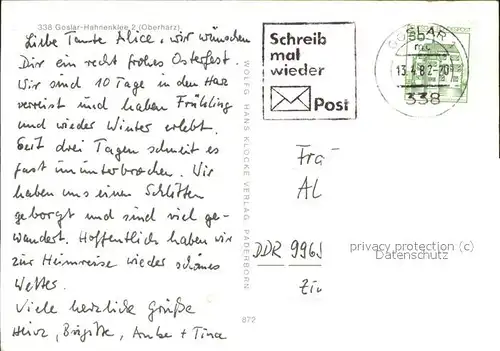 338 Goslar-Hahnenklee 2 (Oberharz)
Liebe Tante Alice, wir wünschen
Dir ein recht frohes Osterfest.
Wir sind 10 Tage in den Harz
verreist und haben Frühling
und wieder Winter erlebt.
Seit drei Tagen schneit es
fast ununterbrochen. Wir
haben uns einen Schlitten
geborgt und sind viel ge-
wandert. Hoffentlich haben wir
zur Heimreise wieder schönes
Wetter.
Viele herzliche Grüße
Heinz, Brigitte, Anke + Tina
WOLFG. HANS KLOCKE VERLAG, PADERBORN
872
Schreib
mal
wieder
Post
GOSLAR
13.4.82-20
338
Fra
AL
DDR 9965
privacy protection (c)
Datenschutz